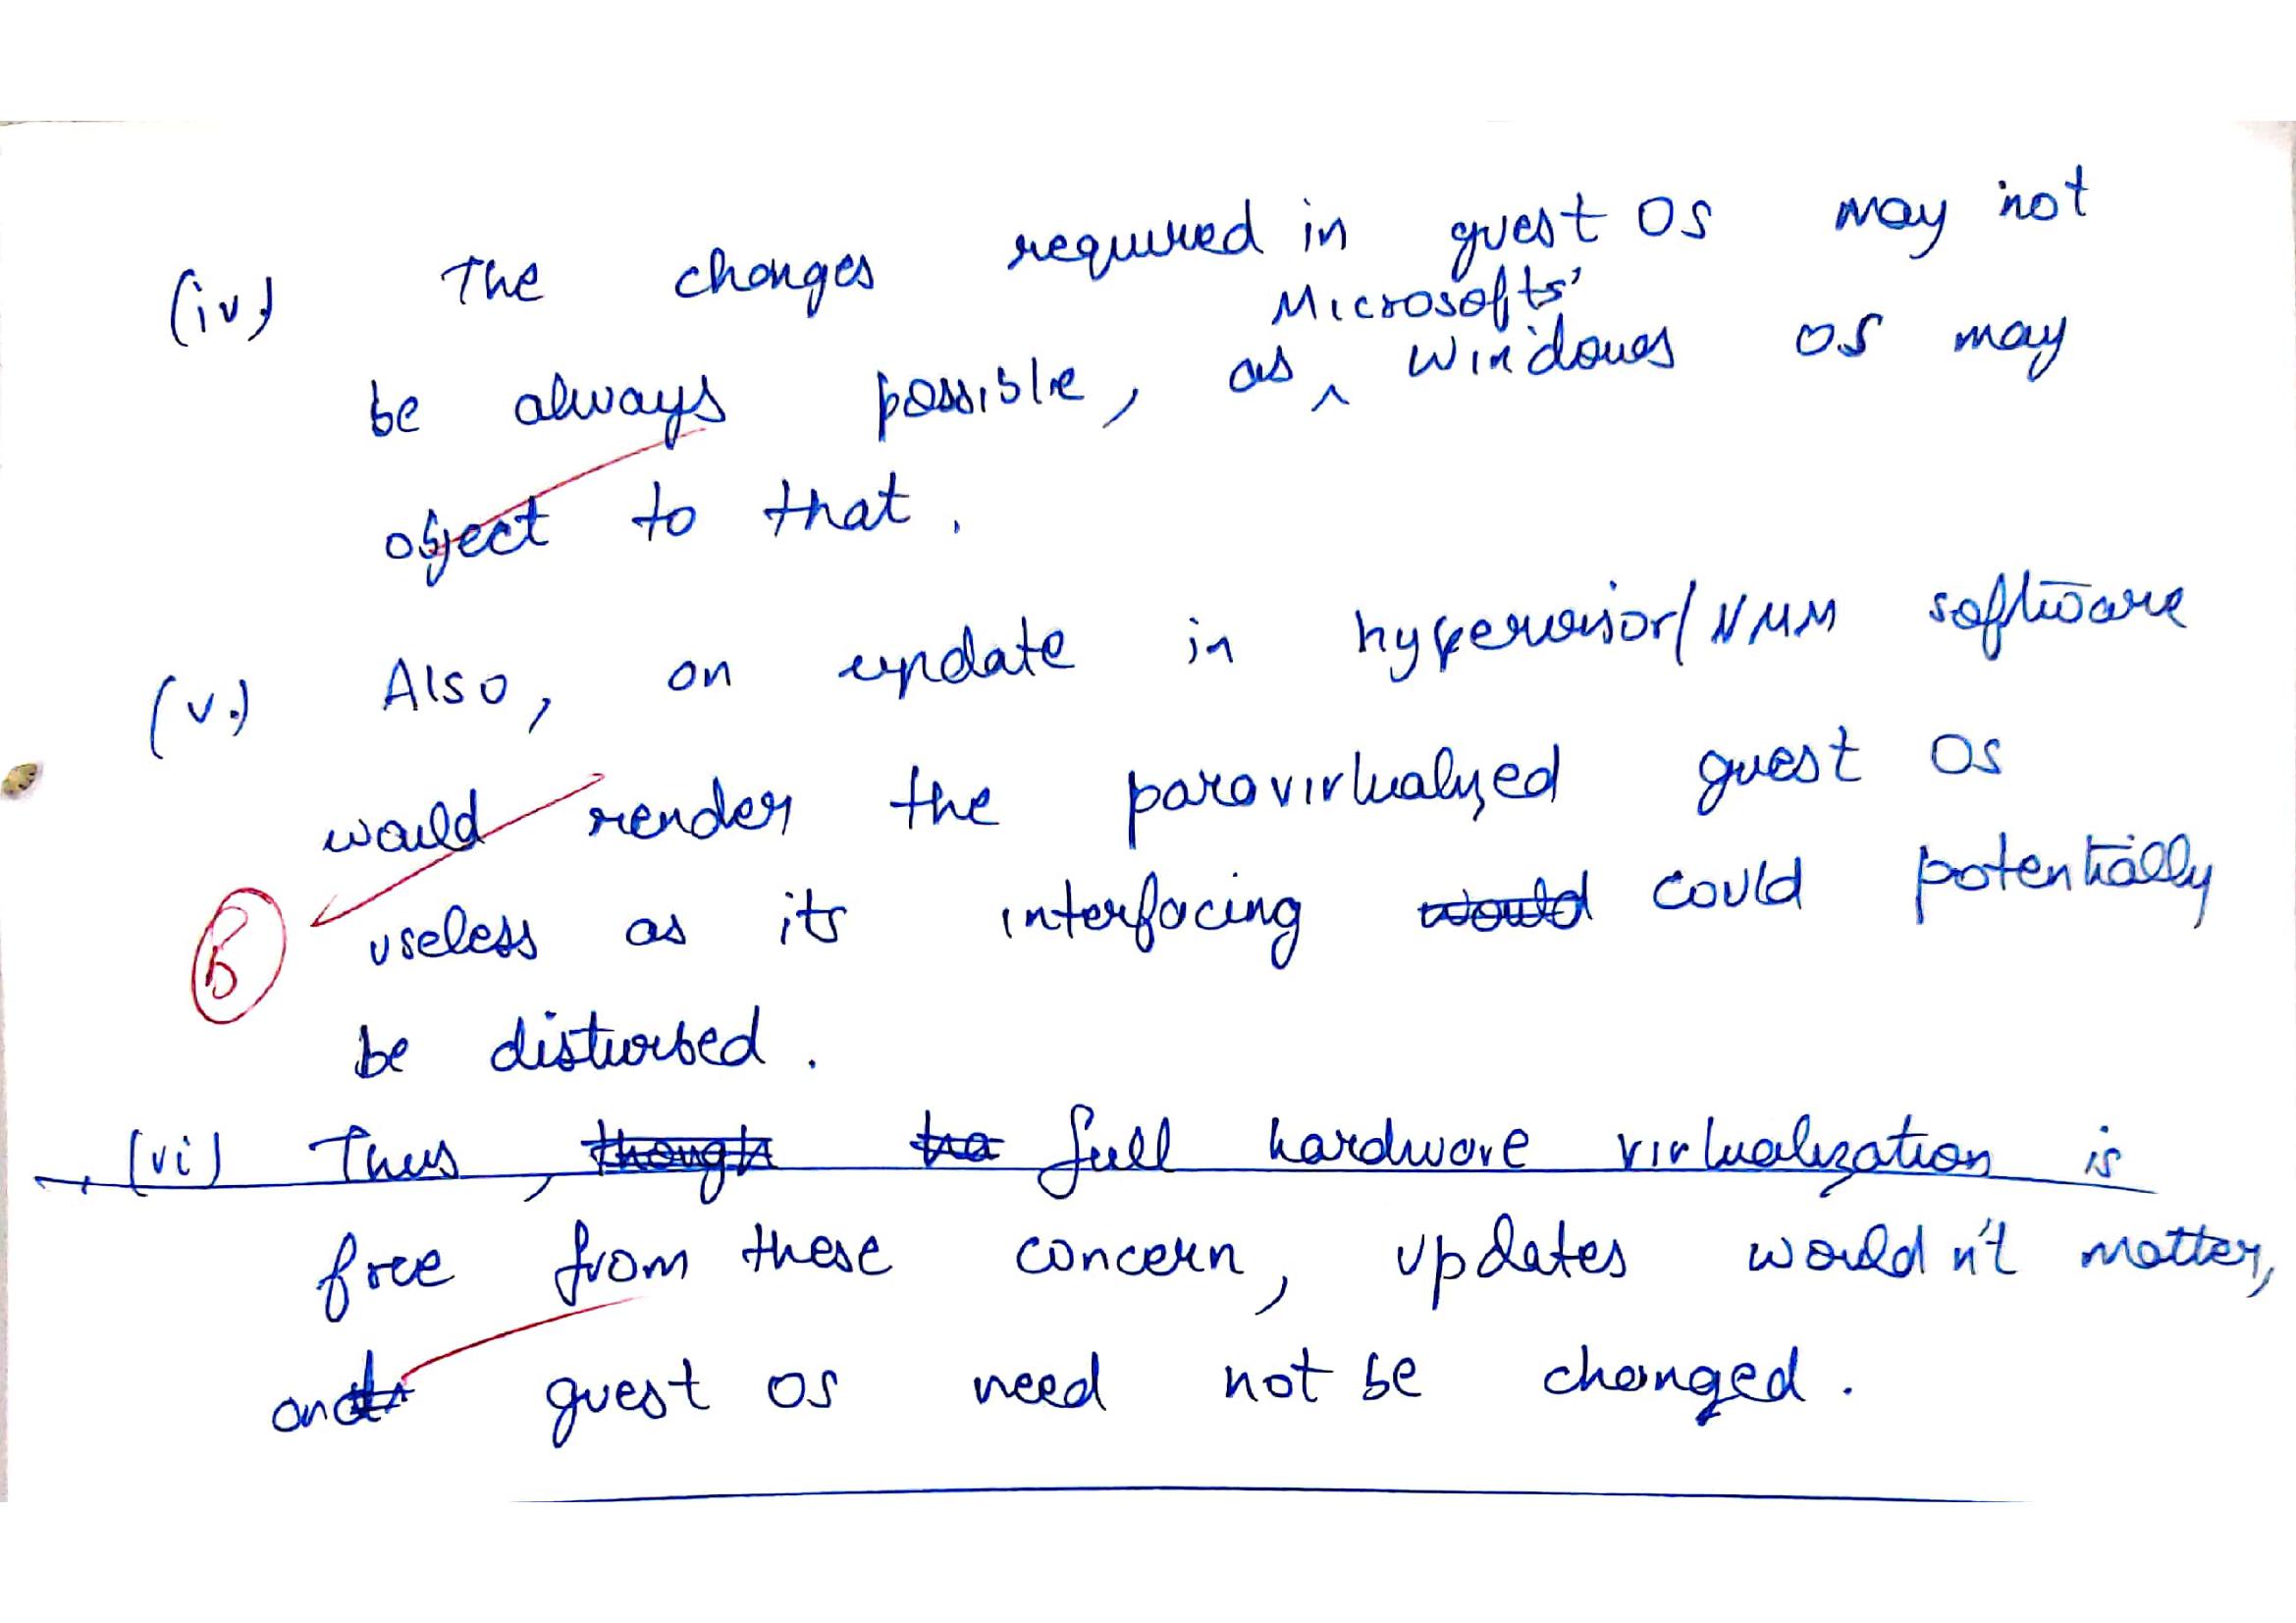 (iv) The changes required in guest OS may not
Microsofts'
be always possible, as ^ Windows OS may
object to that.
(v.) Also, an update in hypervisor/VMM software
would render the paravirtualyzed guest OS
useless as its interfacing would could potentially
be disturbed.
(vi) Thus, though full hardware virtualization is
free from these concern, updates wouldn't matter,
and guest OS need not be changed.